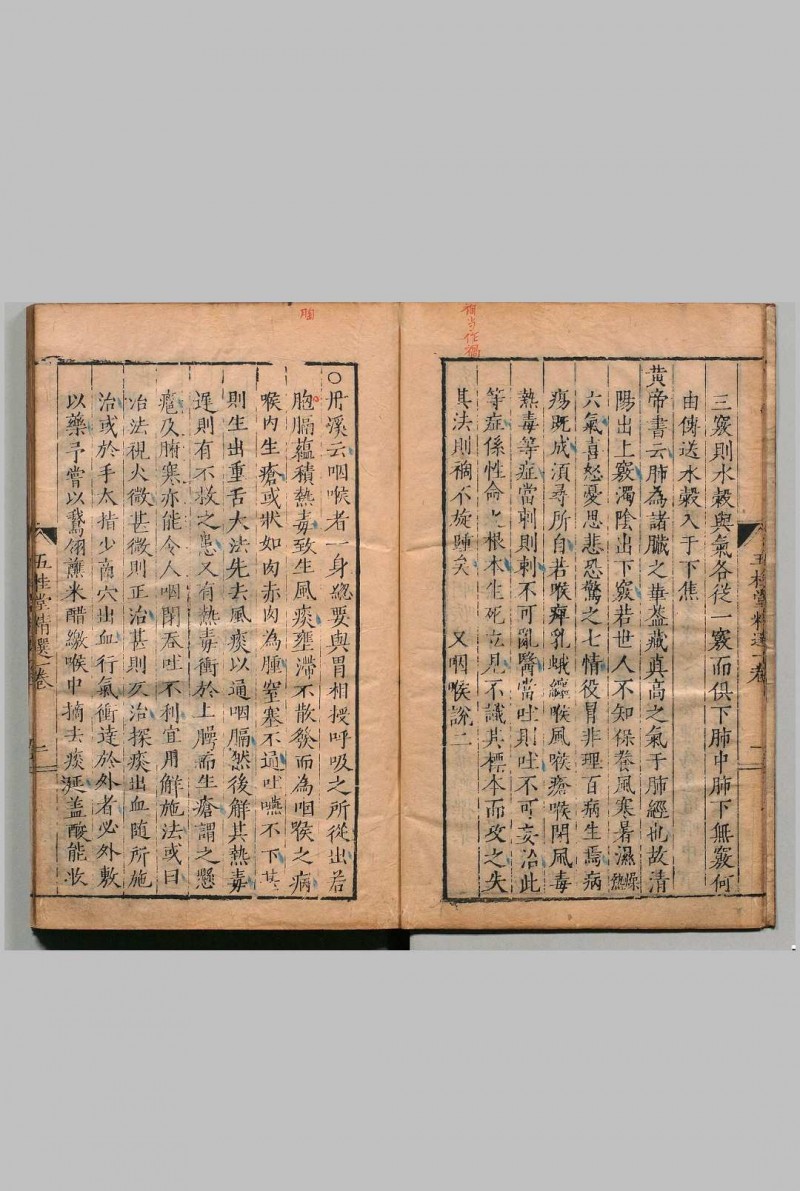 禍當作禍
三竅則水穀與氣各從一竅而俱下肺中肺下無竅何
由傳送水穀入于下焦
黃帝書云肺為諸臟之華蓋藏真高之氣于肺經也故清
陽出上竅濁陰出下竅若世人不知保養風寒暑濕燥熱
六氣喜怒憂思悲恐驚之七情役冒非理百病生焉病
瘍既成須尋所自若喉痺乳蛾纏喉風喉瘡喉閉風毒
熱毒等症當刺則刺不可亂醫當吐則吐不可妄治此
等症係性命之根本生死立見不識其標本而攻之失
其法則禍不旋踵矣 又咽喉說二
五桂堂精選一卷
胸
○丹溪云咽喉者一身總要與胃相授呼吸之所從出若
胞膈蘊積熱毒致生風痰壅滯不散發而為咽喉之病
喉內生瘡或狀如肉赤肉為腫窒塞不通吐嚥不下甚
則生出重舌大法先去風痰以通咽膈然後解其熱毒
遲則有不救之患又有熱毒衝於上腭而生瘡謂之懸
癰及腑寒亦能令人咽閉吞吐不利宜用解施法或曰
治法視火微甚微則正治甚則反治探痰出血隨所施
治或於手太指少商穴出血行氣衝達於外者必外敷
以藥予嘗以鵞翎蘸米醋繳喉中摘去痰涎盖酸能收
五桂堂精選一卷
二